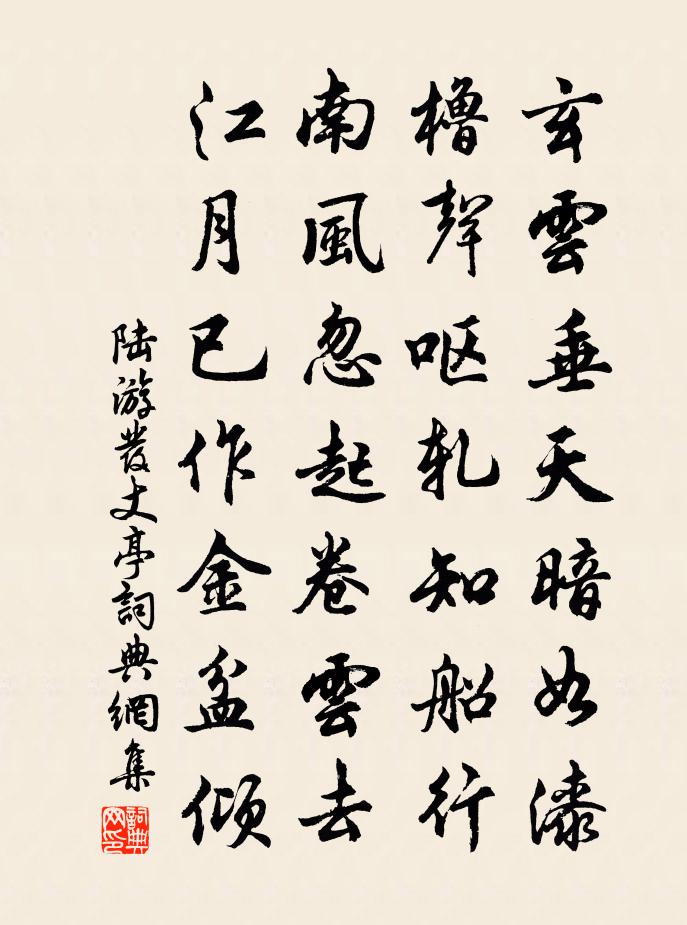 玄雲垂天暗如漆
櫓聲呕軋知船行
南風忽起卷雲去
江月已作金盆傾
陆游發丈亭詞典網集
詞典网印